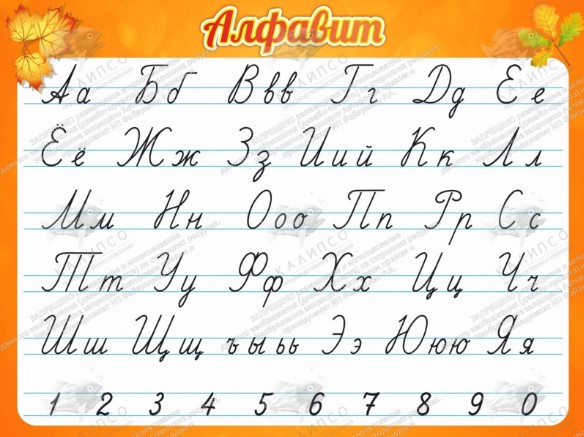 Алфавит
Аа Бб Ввв Гг Дд Ее
Ёё Жж Зз Иий Кк Лл
Мм Нн Ооо Пп Рр Сс
Тт Уу Фф Хх Цц Чч
Шш Щщ ъыьь Ээ Ююю Яя
1 2 3 4 5 6 7 8 9 0